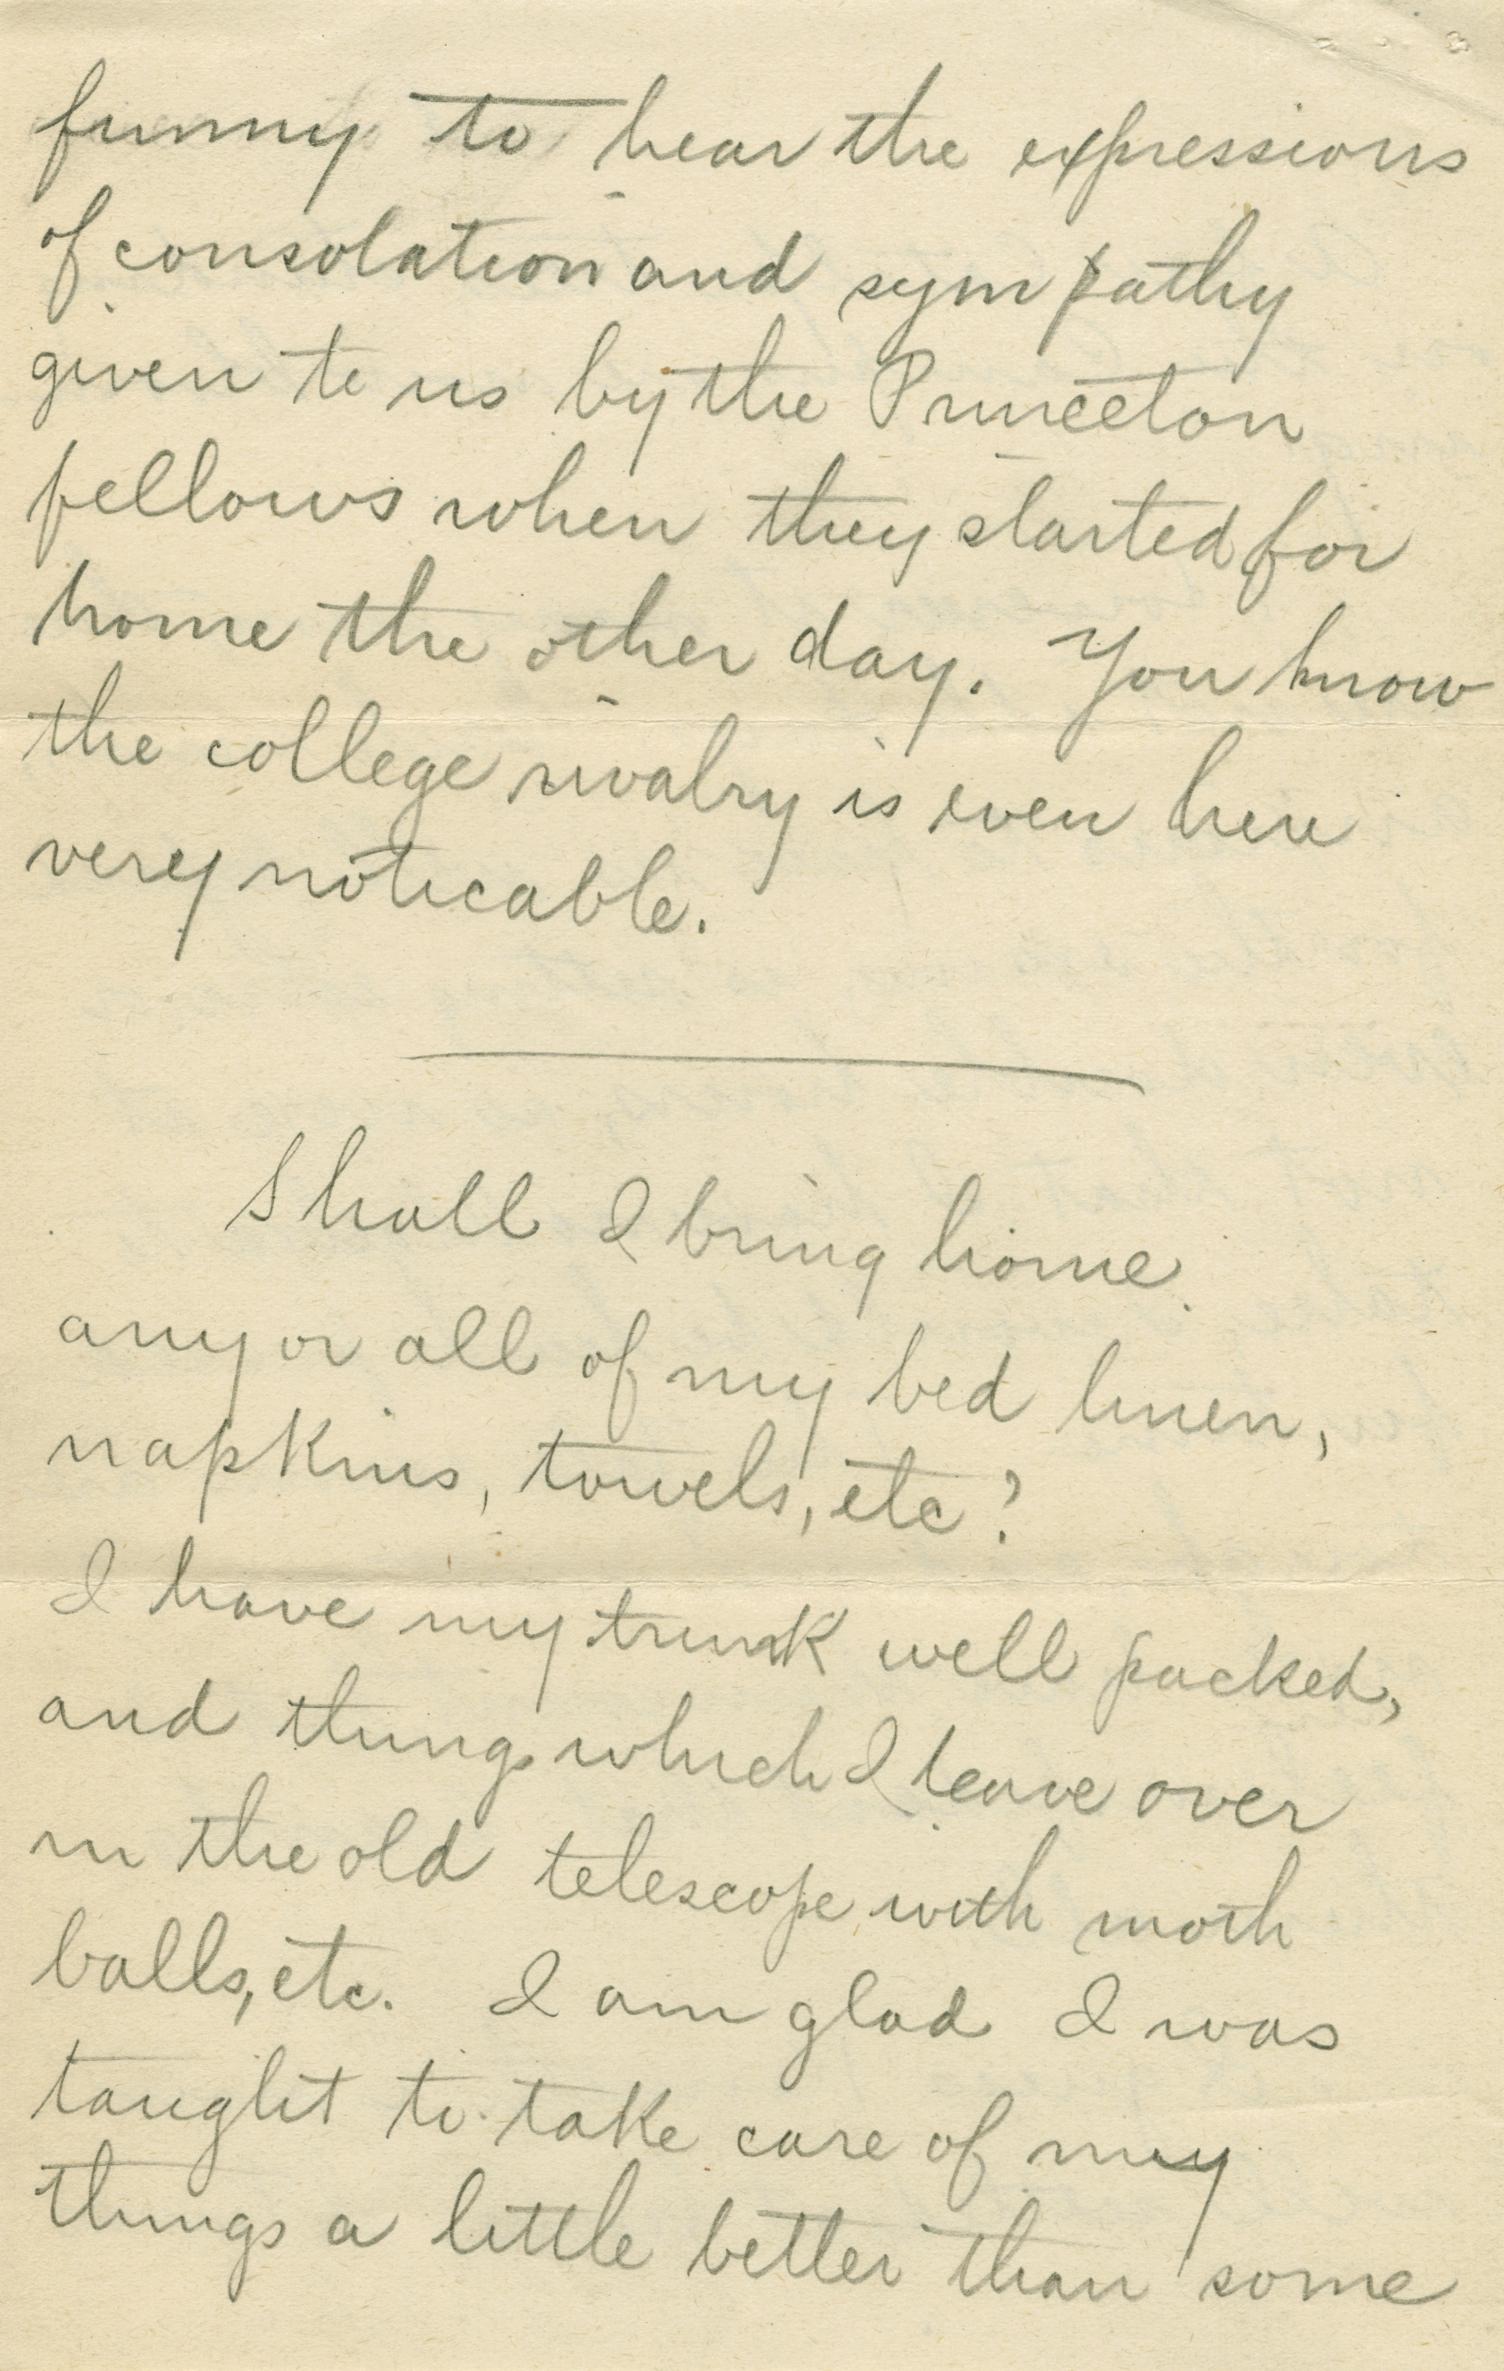 funny to hear the expressions
of consolation and sympathy
given to us by the Princeton
fellows when they started for
home the other day. You know
the college rivalry is even here
very noticable.
Shall I bring home
any or all of my bed linen,
napkins, towels, etc?
I have my trunk well packed,
and things which I leave over
in the old telescope with moth
balls, etc. I am glad I was
taught to take care of my
things a little better than some